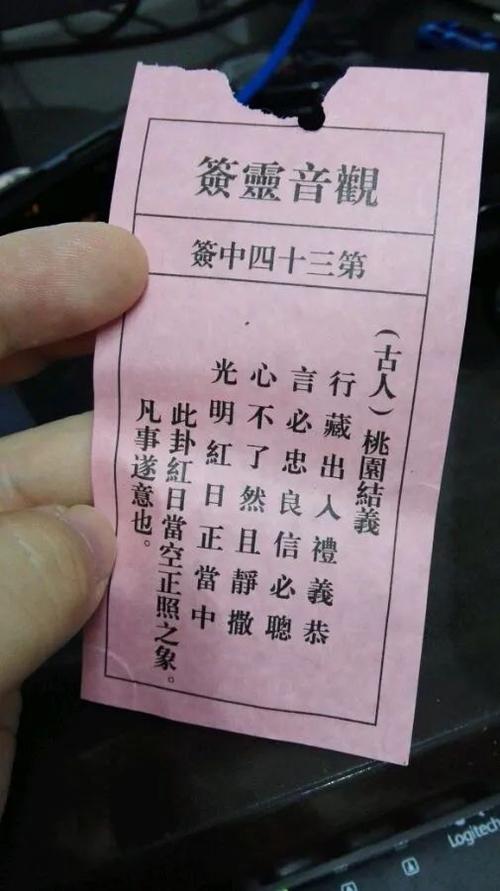 觀音靈簽
第三十四中簽
（古人）桃園結義
行藏出入禮義恭
言必忠良信必聰
心不了然且靜撒
光明紅日正當中
此卦紅日當空正照之象。
凡事遂意也。
Logitech